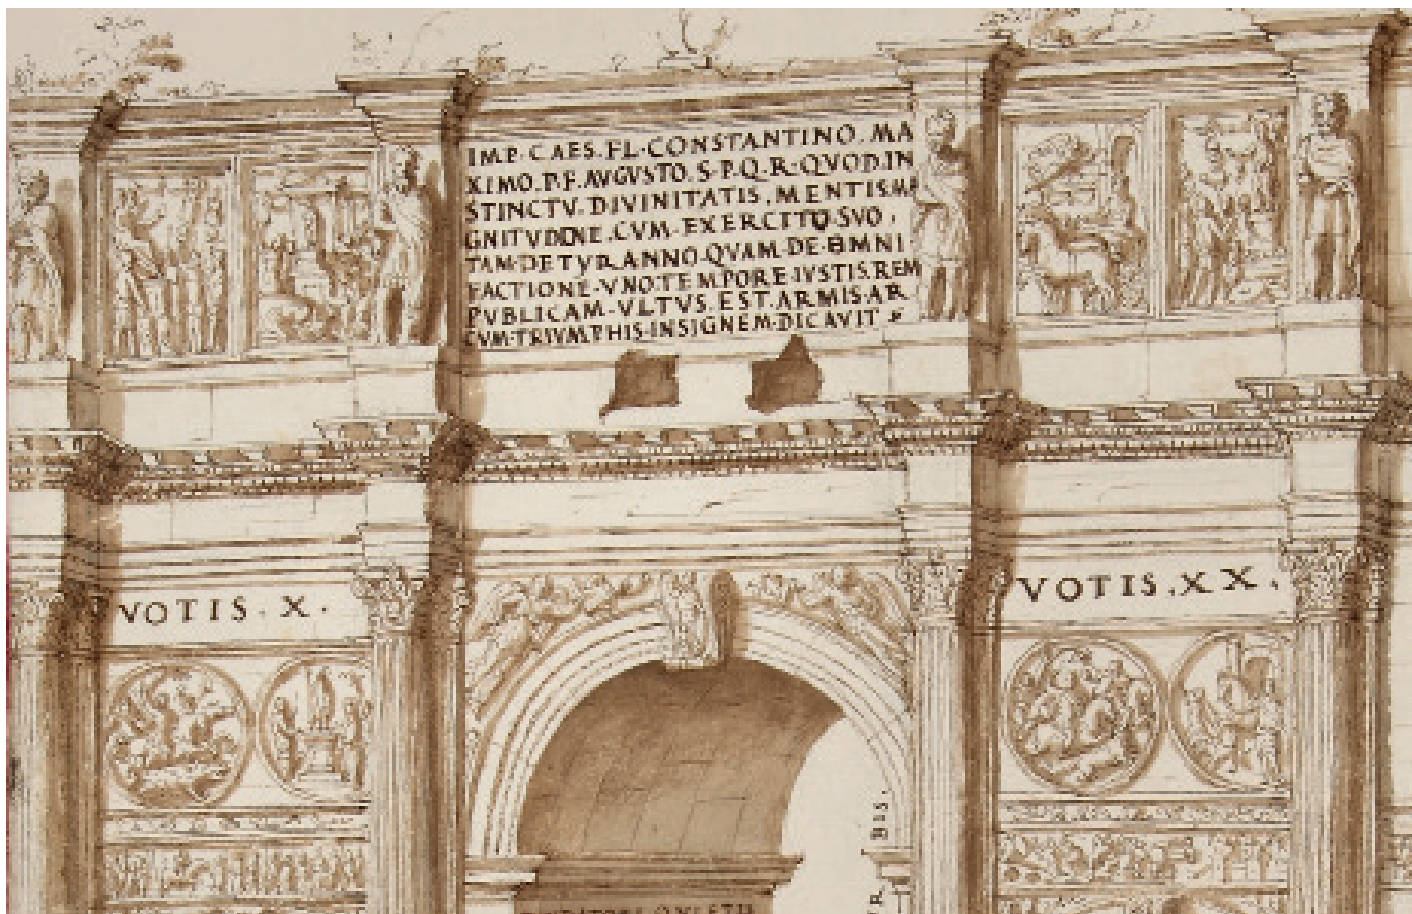 IMP·CAES·FL·CONSTANTINO·MA
XIMO·P·F·AVGVSTO·S·P·Q·R·QVOD·IN
STINCTV·DIVINITATIS·MENTIS MA
GNITVDINE·CVM·EXERCITO·SVO·
TAM·DE TYRANNO·QVAM·DE·OMNI·
FACTIONE·VNO·TEMPORE·IVSTIS·REM
PVBLICAM·VLTVS·EST·ARMIS·AR
CVM·TRIVMPHIS·INSIGNEM·DICAVIT
VOTIS·X·
VOTIS·XX·
BIS·